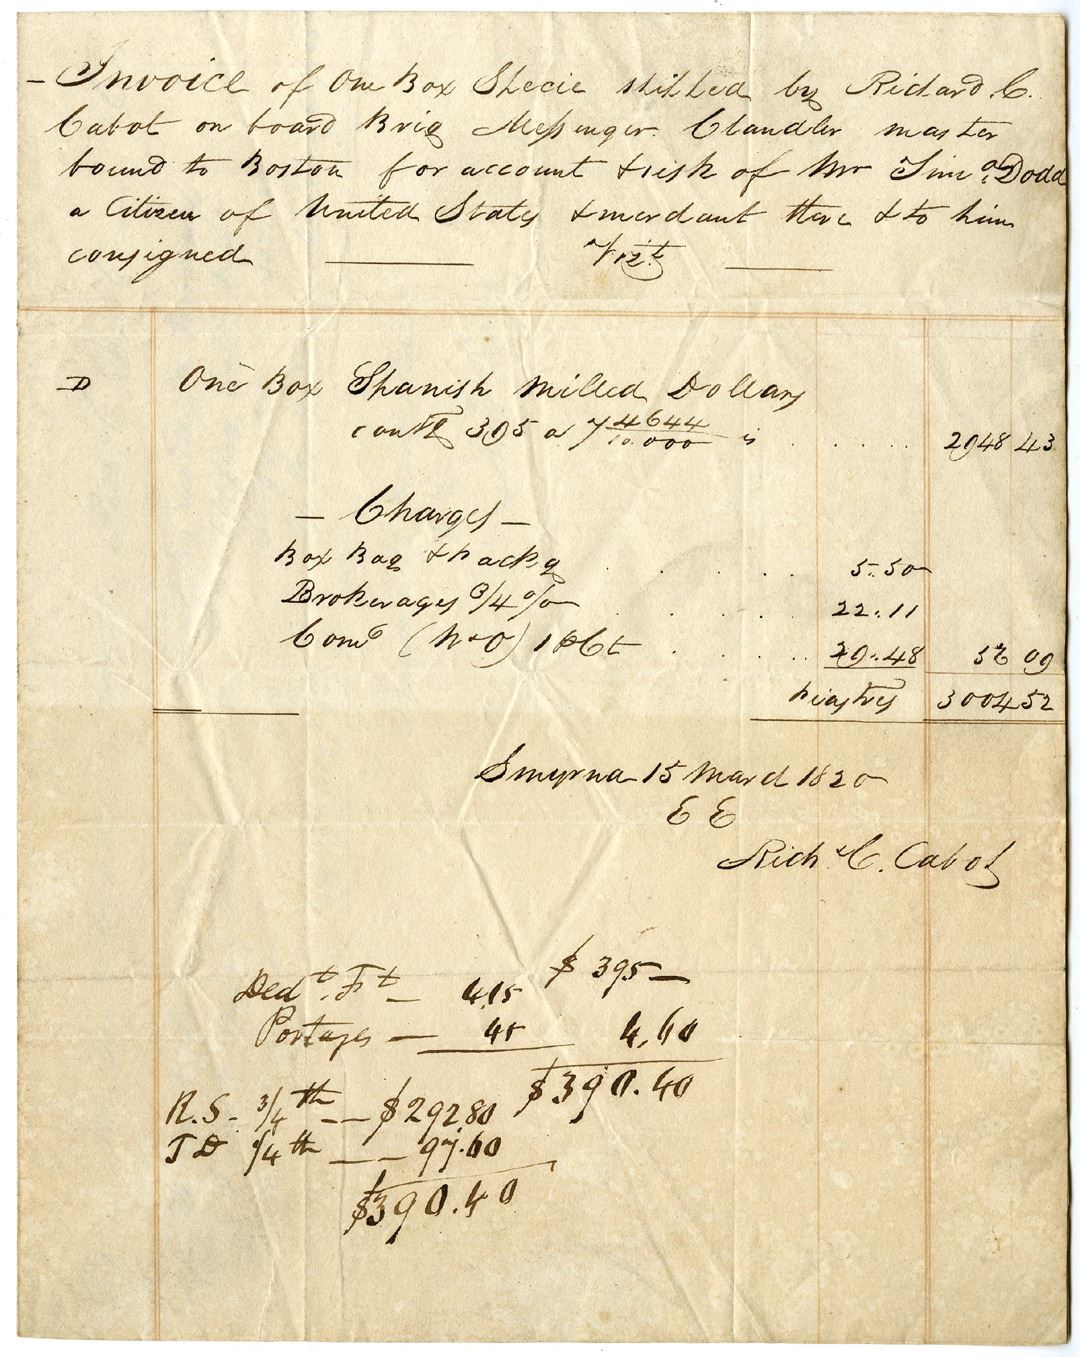 – Invoice of One Box Specie shipped by Richard C.
Cabot on board Brig Messenger Chandler master
bound to Boston for account & risk of Mr Timo. Dodd
a Citizen of United States & merchant there & to him
consigned ——— Vizt ———
D One Box Spanish Milled Dollars
contg 395 a 7 4644/10.000 is . . . . 2948 43
– Charges –
Box Bag & packg . . . . 5.50
Brokerages 3/4 % . . . 22.11
Como ( ) 1 pCt . . . . 29.48 57 09
piastres 3005 52
Smyrna 15 March 1820
E E
Richd C. Cabot
Dedt. Ft – 4,15 $ 395 –
Portages – 45 4,60
$390.40
R.S – 3/4th –– $292.80
T D 1/4th –– 97.60
$390.40